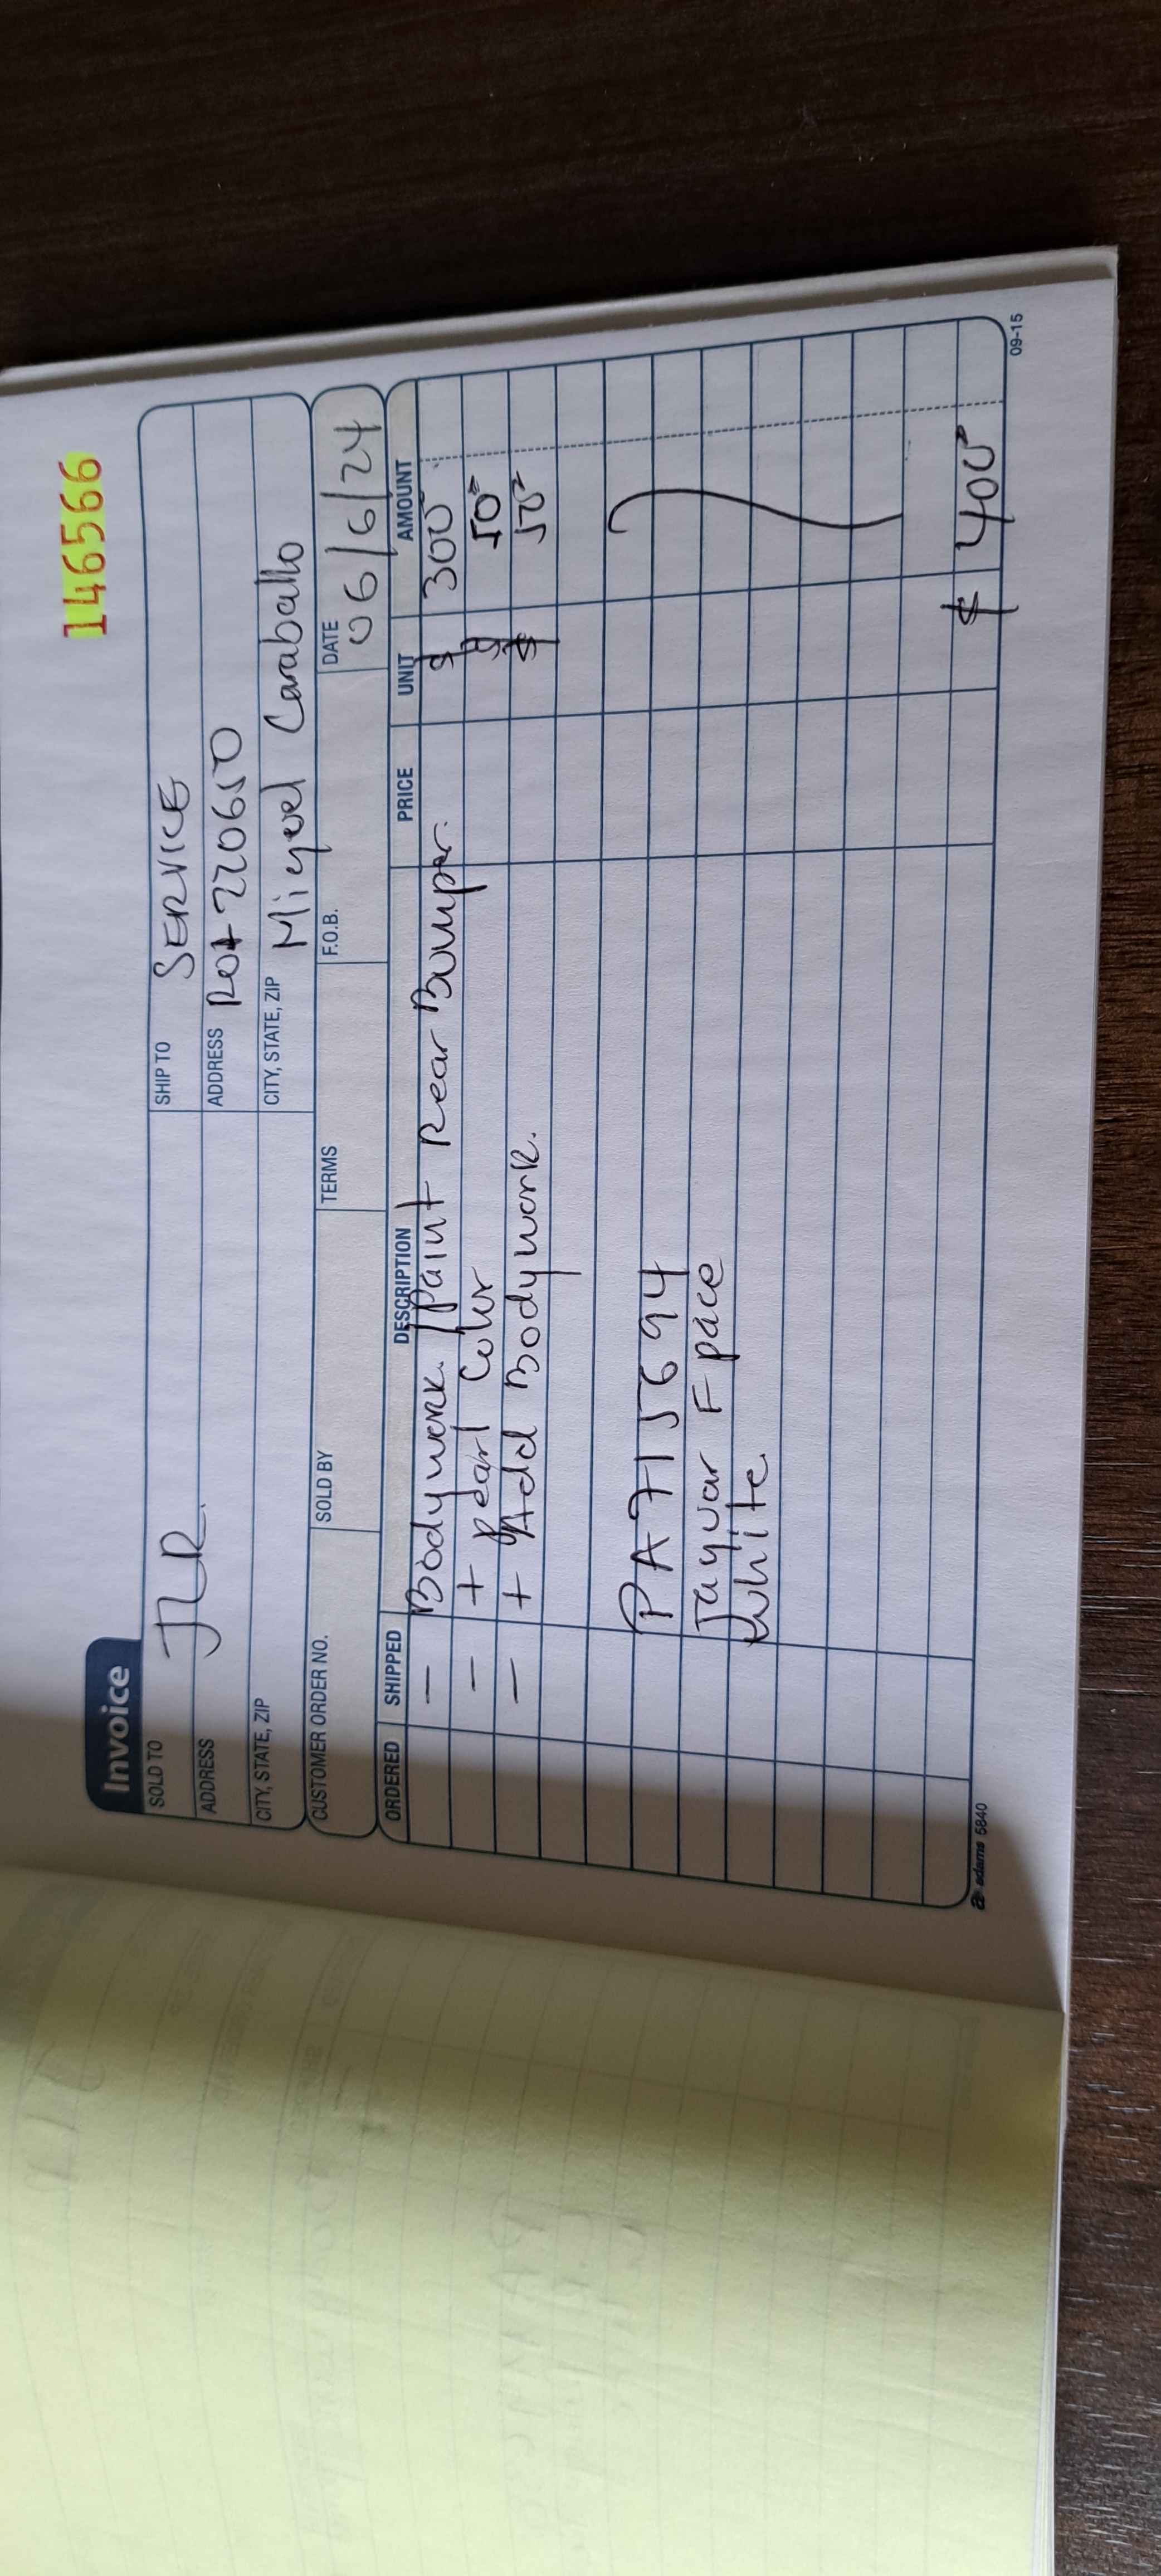 146566
Invoice
SOLD TO JLR.
SHIP TO SERVICE
ADDRESS
ADDRESS Ro# 220650
CITY, STATE, ZIP
CITY, STATE, ZIP Miguel Caraballo
CUSTOMER ORDER NO. SOLD BY TERMS F.O.B. DATE 06/6/24
ORDERED SHIPPED DESCRIPTION PRICE UNIT AMOUNT
— Bodywork / Paint Rear Bumper. $ 300°
— + Pearl Color $ 50°
— + Add Bodywork. $ 50°
PA715694
Jaguar Fpace
White
$ 400°
adams 5840
09-15